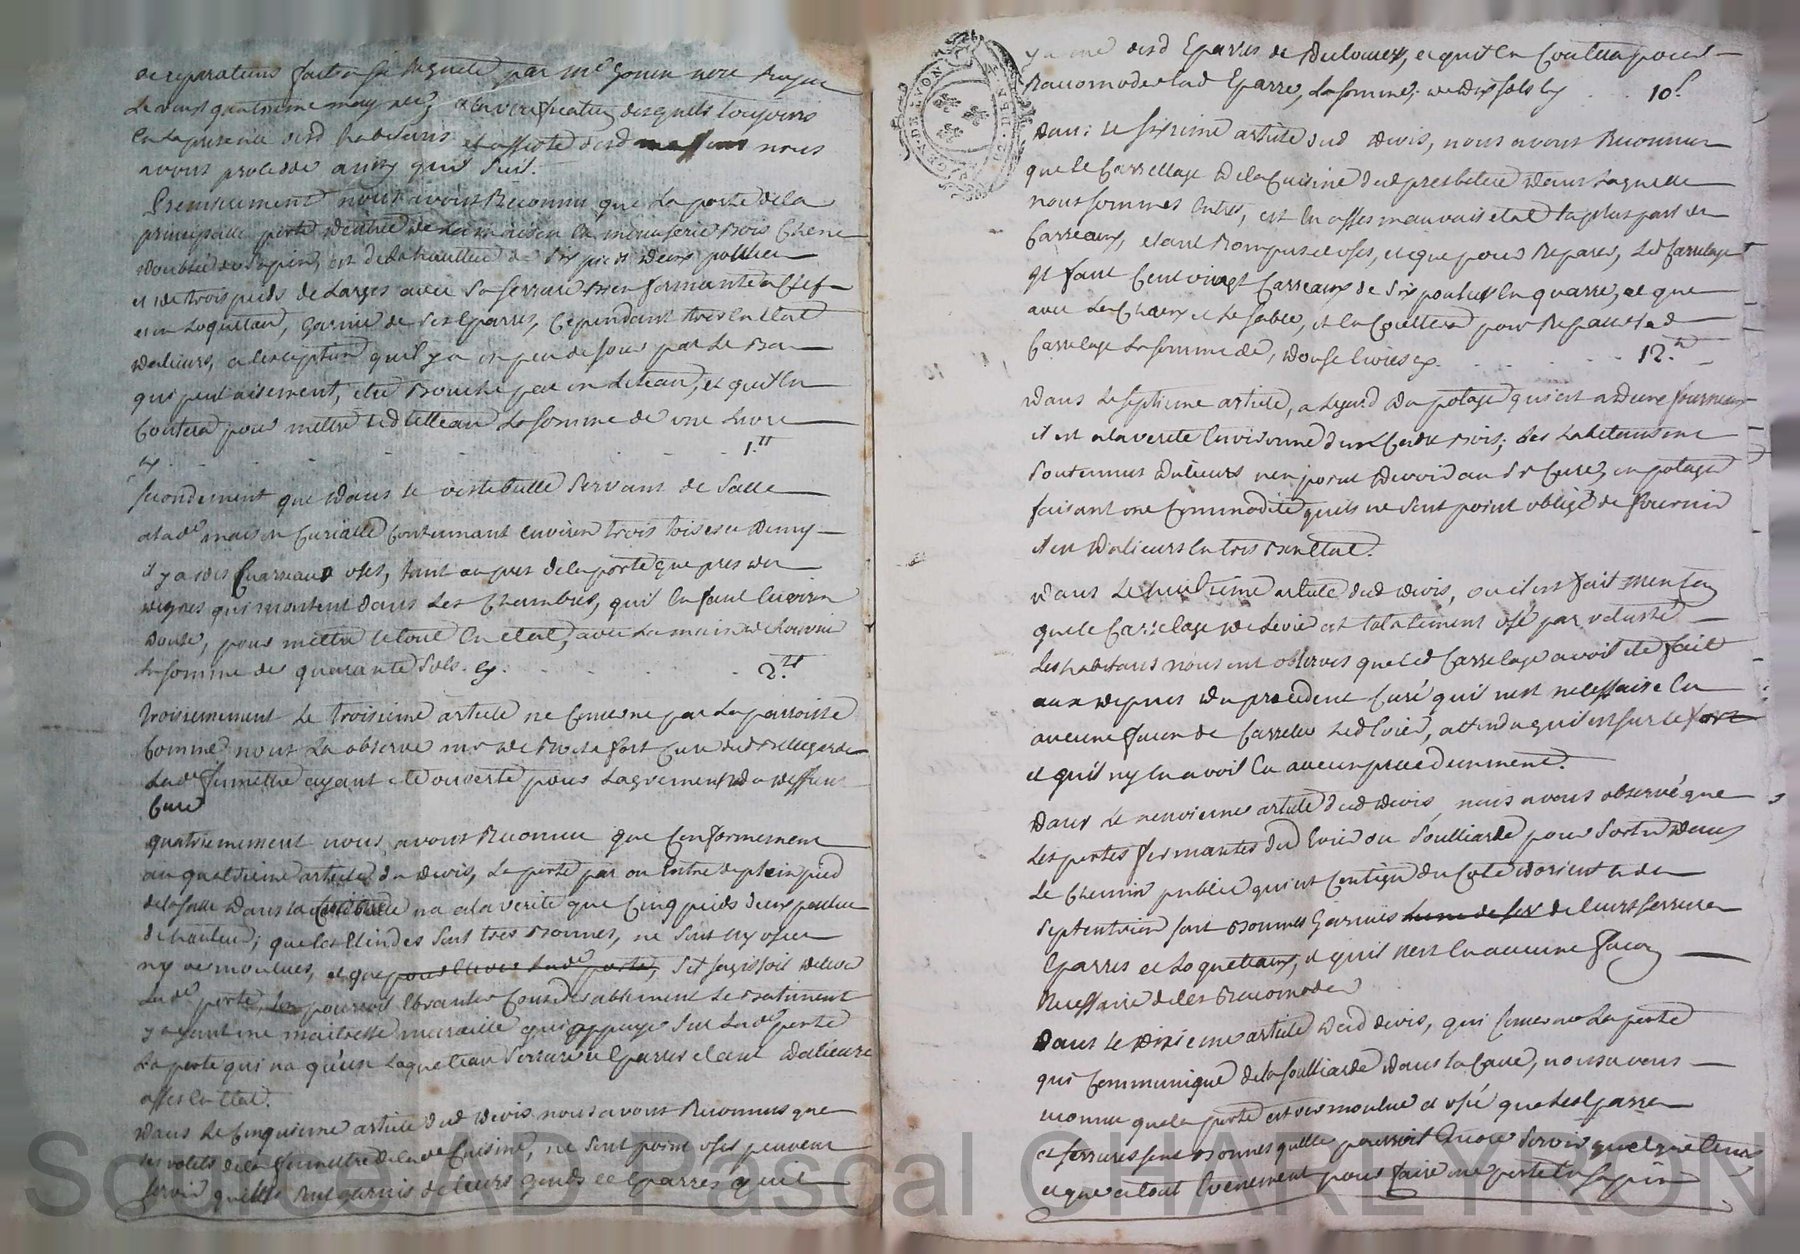 de reparations fait a sa Requete par me gonin nore Royal
Le vingt quatrieme may der, a la verification desquels toujours
En la presence desd habitans et assiste desd massons nous
avons procedde ainsy quil suit.
Premierement nous avons Reconnu que La porte de la
principalle porte d'entree de La maison En menuserie Bois Chene
doublée de sapin, est de la hautteur de six pieds deux pouces
et de trois pieds de Large avec sa serrure Bien fermante a Clef
et un Loquetau, garnie de ses Eparres, Cependant tres En Etat
d'alieurs, a l'exeption quil y a un peu de jour par le Bas
qui peut aisement, etre Bouché par un Liteau, et quil En
Coutera pour mettre led Litteau La somme de une Livre
ey . . . 1.tt
secondement que dans le vestibulle servant de salle
a lade maison Curialle Contennant environ trois toises et demy
il y a des Quarreaux usés, tant aupres de la porte que pres des
degres qui montent dans Les Chambres, quil En faut Environ
douse, pour mettre le tout En etat, avec La main d'heuvre
La somme de quarante sols. ey. . . . 2.tt
troisiemement Le troisieme article ne Conserne pas La parroisse
Comme nous La observé mr de Rochefort Curé dud Bellegarde
Lade fennettre ayant eté ouverte pour Lagrement du deffunt
Curé
quatriemement nous avons Reconnu que Conformement
au quatrieme article du devis, La porte par ou L'entre de plein pied
de la salle dans la Cuisine na a la verite que Cinq pieds deux pouces
de hauteur; que les Elindes sont tres Bonnes, ne sont ny usées
ny vermoulues, et que pour Elever lade porte, sil sagissoit d'elever
Lade porte, Lon pourroit Ebranler Considerablement Le Batiment
y ayant une maitresse muraille qui appuye sur Lade porte
La porte qui na qu'un Loqueteau serrure et Eparres etant d'alieurs
asses En Etat.
dans Le Cinquieme article dud devis nous avons Reconnus que
Les volets de la fennettre de lade Cuisine, ne sont point usés peuvent
servir quelles sont garnis de leurs gonds et Eparres quil
y a une desd Eparres de deloueé, et quil En Coutera pour
Racomoder Lad Eparre, La somme, de dix sols ey . . 10.s
Dans le sixieme article dud devis, nous avons Reconnu
que le Carrellage de la Cuisine dud presbitere dans laquelle
nous sommes Entres, est En asses mauvais etat la plus part des
Carreaux, etant Rompus et usés, et que pour Reparer, Led Carrelage
il faut Cent vingt Carreaux de six pouces En quarré, et que
avec La Chaux et le sable, il En Couttera pour Reparer led
Carrelage La somme de, douse livres ey. . . . 12.tt
dans Le septieme article, a legard du potagé qui est a deux fourneaux
il est a la verité Environné d'un Cadre Bois; Les habitans ne
soutennus d'alieurs nen point devoir au Sr Curé, un potagé
faisant une Commodité quils ne sont point obligé de fournir
il est d'alieurs En tres Bon Etat.
dans Le huitieme article dud devis, ou il est fait mention
que le Carrelage de Levié est totalement usé par vetusté
Les habitans nous ont observés que led Carrelage avoit été fait
aux depens du precedent Curé quil nest necessaire En
aucune facon de Carreler Led Evié, attendu quil est sur le fort
et quil ny En avoit Eu aucun precedemment.
dans le neuvieme article dud devis nous avons observé que
Les portes fermantes dud Evié ou soulliarde pour sortir dans
Le Chemin public qui est Contigu du Coté d'orient et de
septentrion sont Bonnes garnies Lune de fer de leurs serrures
Eparres et Loquettaux, et quil nest En aucune facon
Necessaire de les Racomoder
dans le dixieme article dud devis, qui Conserne La porte
qui Communique de la soulliarde dans la Cave, nous avons
reconnu que la porte est vermoulue et usée que les Eparres
et serrures sont Bonnes quelle pourroit Encore servir quelque tems
et que a tout Evenement pour faire une porte En sapin
Source AD Pascal CHARLEYRON